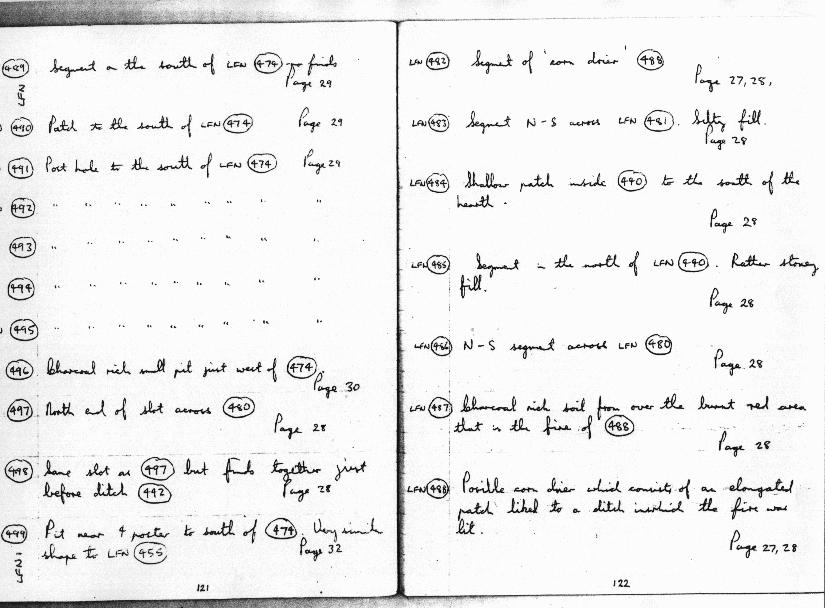 489 Segment on the south of LFN 474 - no finds
Page 29
490 Patch to the south of LFN 474 Page 29
491 Post hole to the south of LFN 474 Page 29
492 " " " " " " " "
493 " " " " " " " "
494 " " " " " " " "
495 " " " " " " " "
496 Charcoal rich small pit just west of 474.
Page 30
497 North end of slot across 480
Page 28
498 Same slot as 497 but finds together just
before ditch 442
Page 28
499 Pit near 4 poster to south of 474. Very similar
shape to LFN 455
Page 32
121
LFN 482 Segment of 'corn drier' 488
Page 27, 28,
LFN 483 Segment N-S across LFN 481. Silty fill.
Page 28
LFN 484 Shallow patch inside 440 to the south of the
hearth.
Page 28
LFN 485 Segment in the north of LFN 440. Rather stoney
fill.
Page 28
LFN 486 N-S segment across LFN 480
Page 28
LFN 487 Charcoal rich soil from over the burnt red area
that is the fire of 488
Page 28
LFN 488 Possible corn drier which consists of an elongated
patch linked to a ditch in which the fire was
lit.
Page 27, 28
122